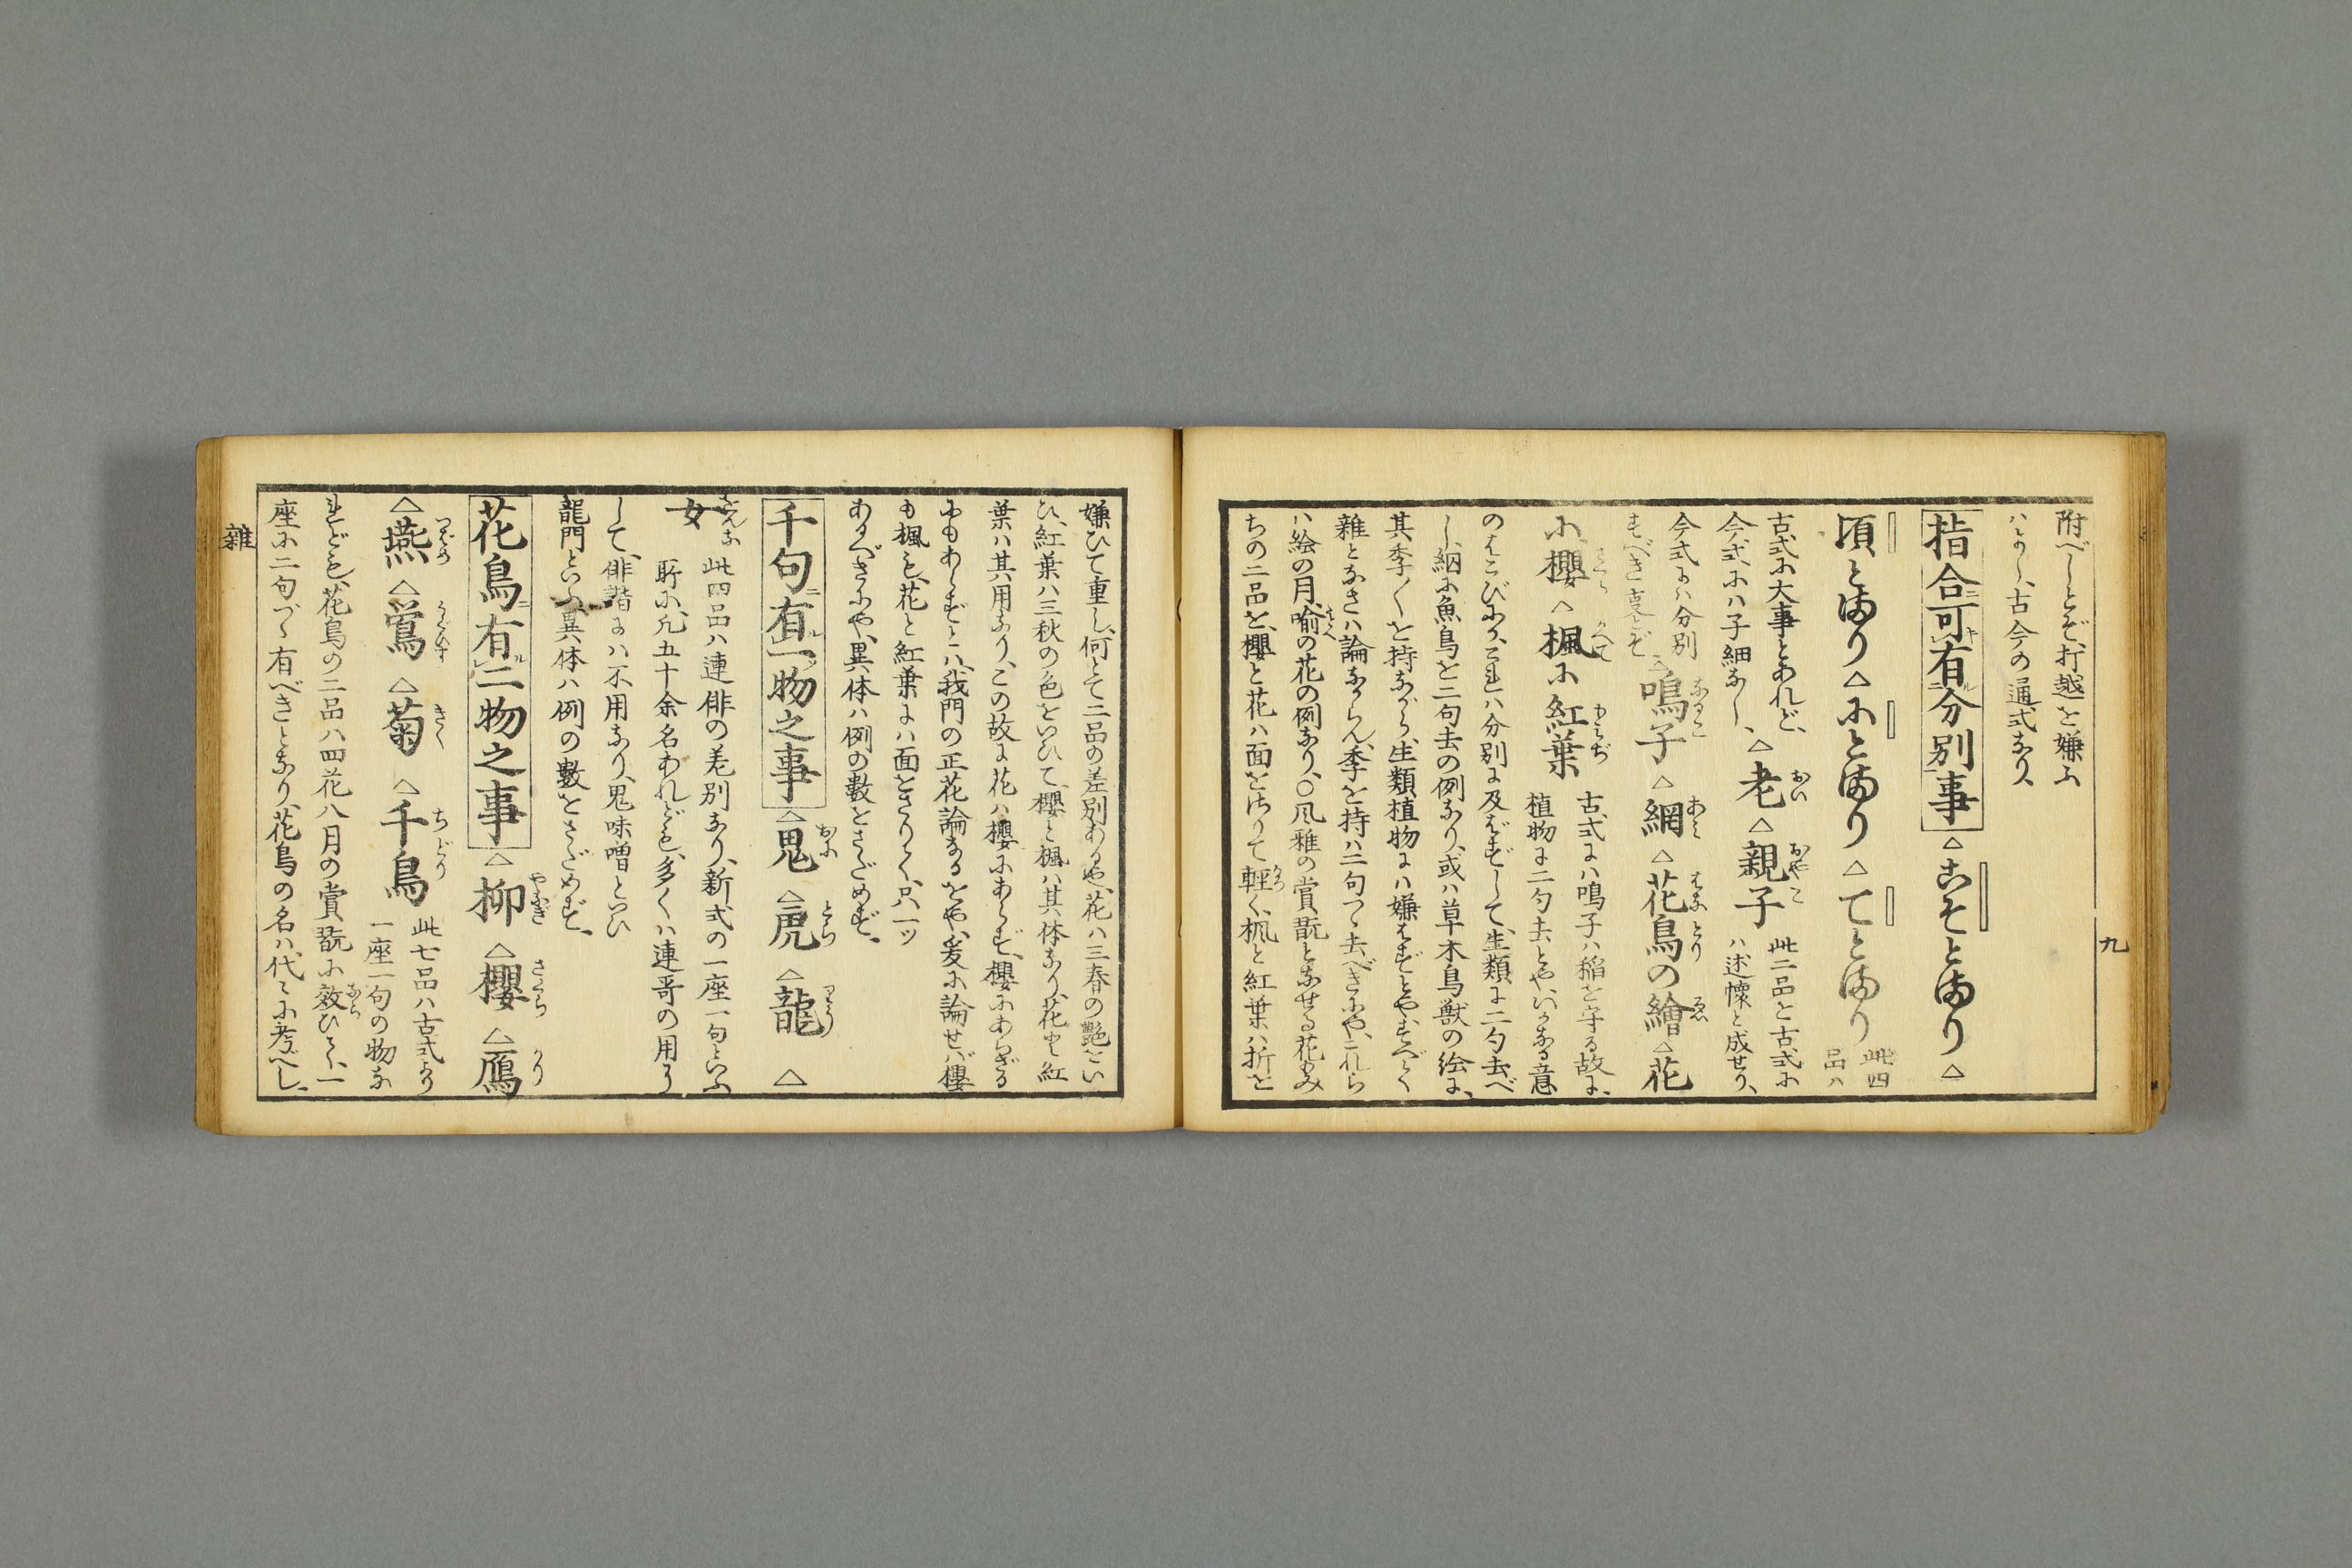 附べしとぞ、打越を嫌ふ
ハとかく、古今の通式なり、
指合可有分別事△こそとまり△
頃とまり△にとまり△てとまり 此四品ハ
古式に大事とあれど、
今式にハ子細なし、△老△親子 此二品を古式に
ハ述懐と成せり、
今式にハ分別
すべき事とぞ、△鳴子△網△花鳥の繪△花
に櫻△楓に紅葉 古式にハ鳴子ハ稲を守る故に、
植物に二句去とや、いかなる意
のはこびにか、これハ分別に及ばずして、生類に二句去べ
し、網に魚鳥を二句去の例なり、或ハ草木鳥獣の絵に、
其季〱を持ながら、生類植物にハ嫌はずとや、すべて
雑となきハ論なからん、季を持ハ二句づゝ去べきにや、これら
ハ絵の月、喩の花の例なり、○風雅の賞翫となせる花もみ
ちの二品を、櫻と花ハ面をさりて軽く、楓と紅葉ハ折を
九
嫌ひて重し、何とて二品の差別あるや、花ハ三春の艶をい
ひ、紅葉ハ三秋の色をいひて、櫻と楓ハ其体なり、花も紅
葉ハ其用なり、この故に花ハ櫻にあらず、櫻にあらざる
にもあらずとハ、我門の正花論なるをや、爰に論せバ、櫻
も楓も、花と紅葉にハ面をさりて、只一ツ
あるべきにや、異体ハ例の數をさだめず、
千句有一物之事△鬼△虎△龍△
女 此四品ハ連俳の差別なり、新式の一座一句といふ
所に、凡五十余名あれども、多くハ連哥の用に
して、俳諧にハ不用なり、鬼味噌といひ
龍門といふ異体ハ例の數をさだめず、
花鳥有二物之事△柳△櫻△鴈
△燕△鴬△菊△千鳥 此七品ハ古式より
一座一句の物な
れども、花鳥の二品ハ四花八月の賞翫に效ひて、一
座に二句づゝ有べきとなり、花鳥の名ハ、代〻に考べし、
雑